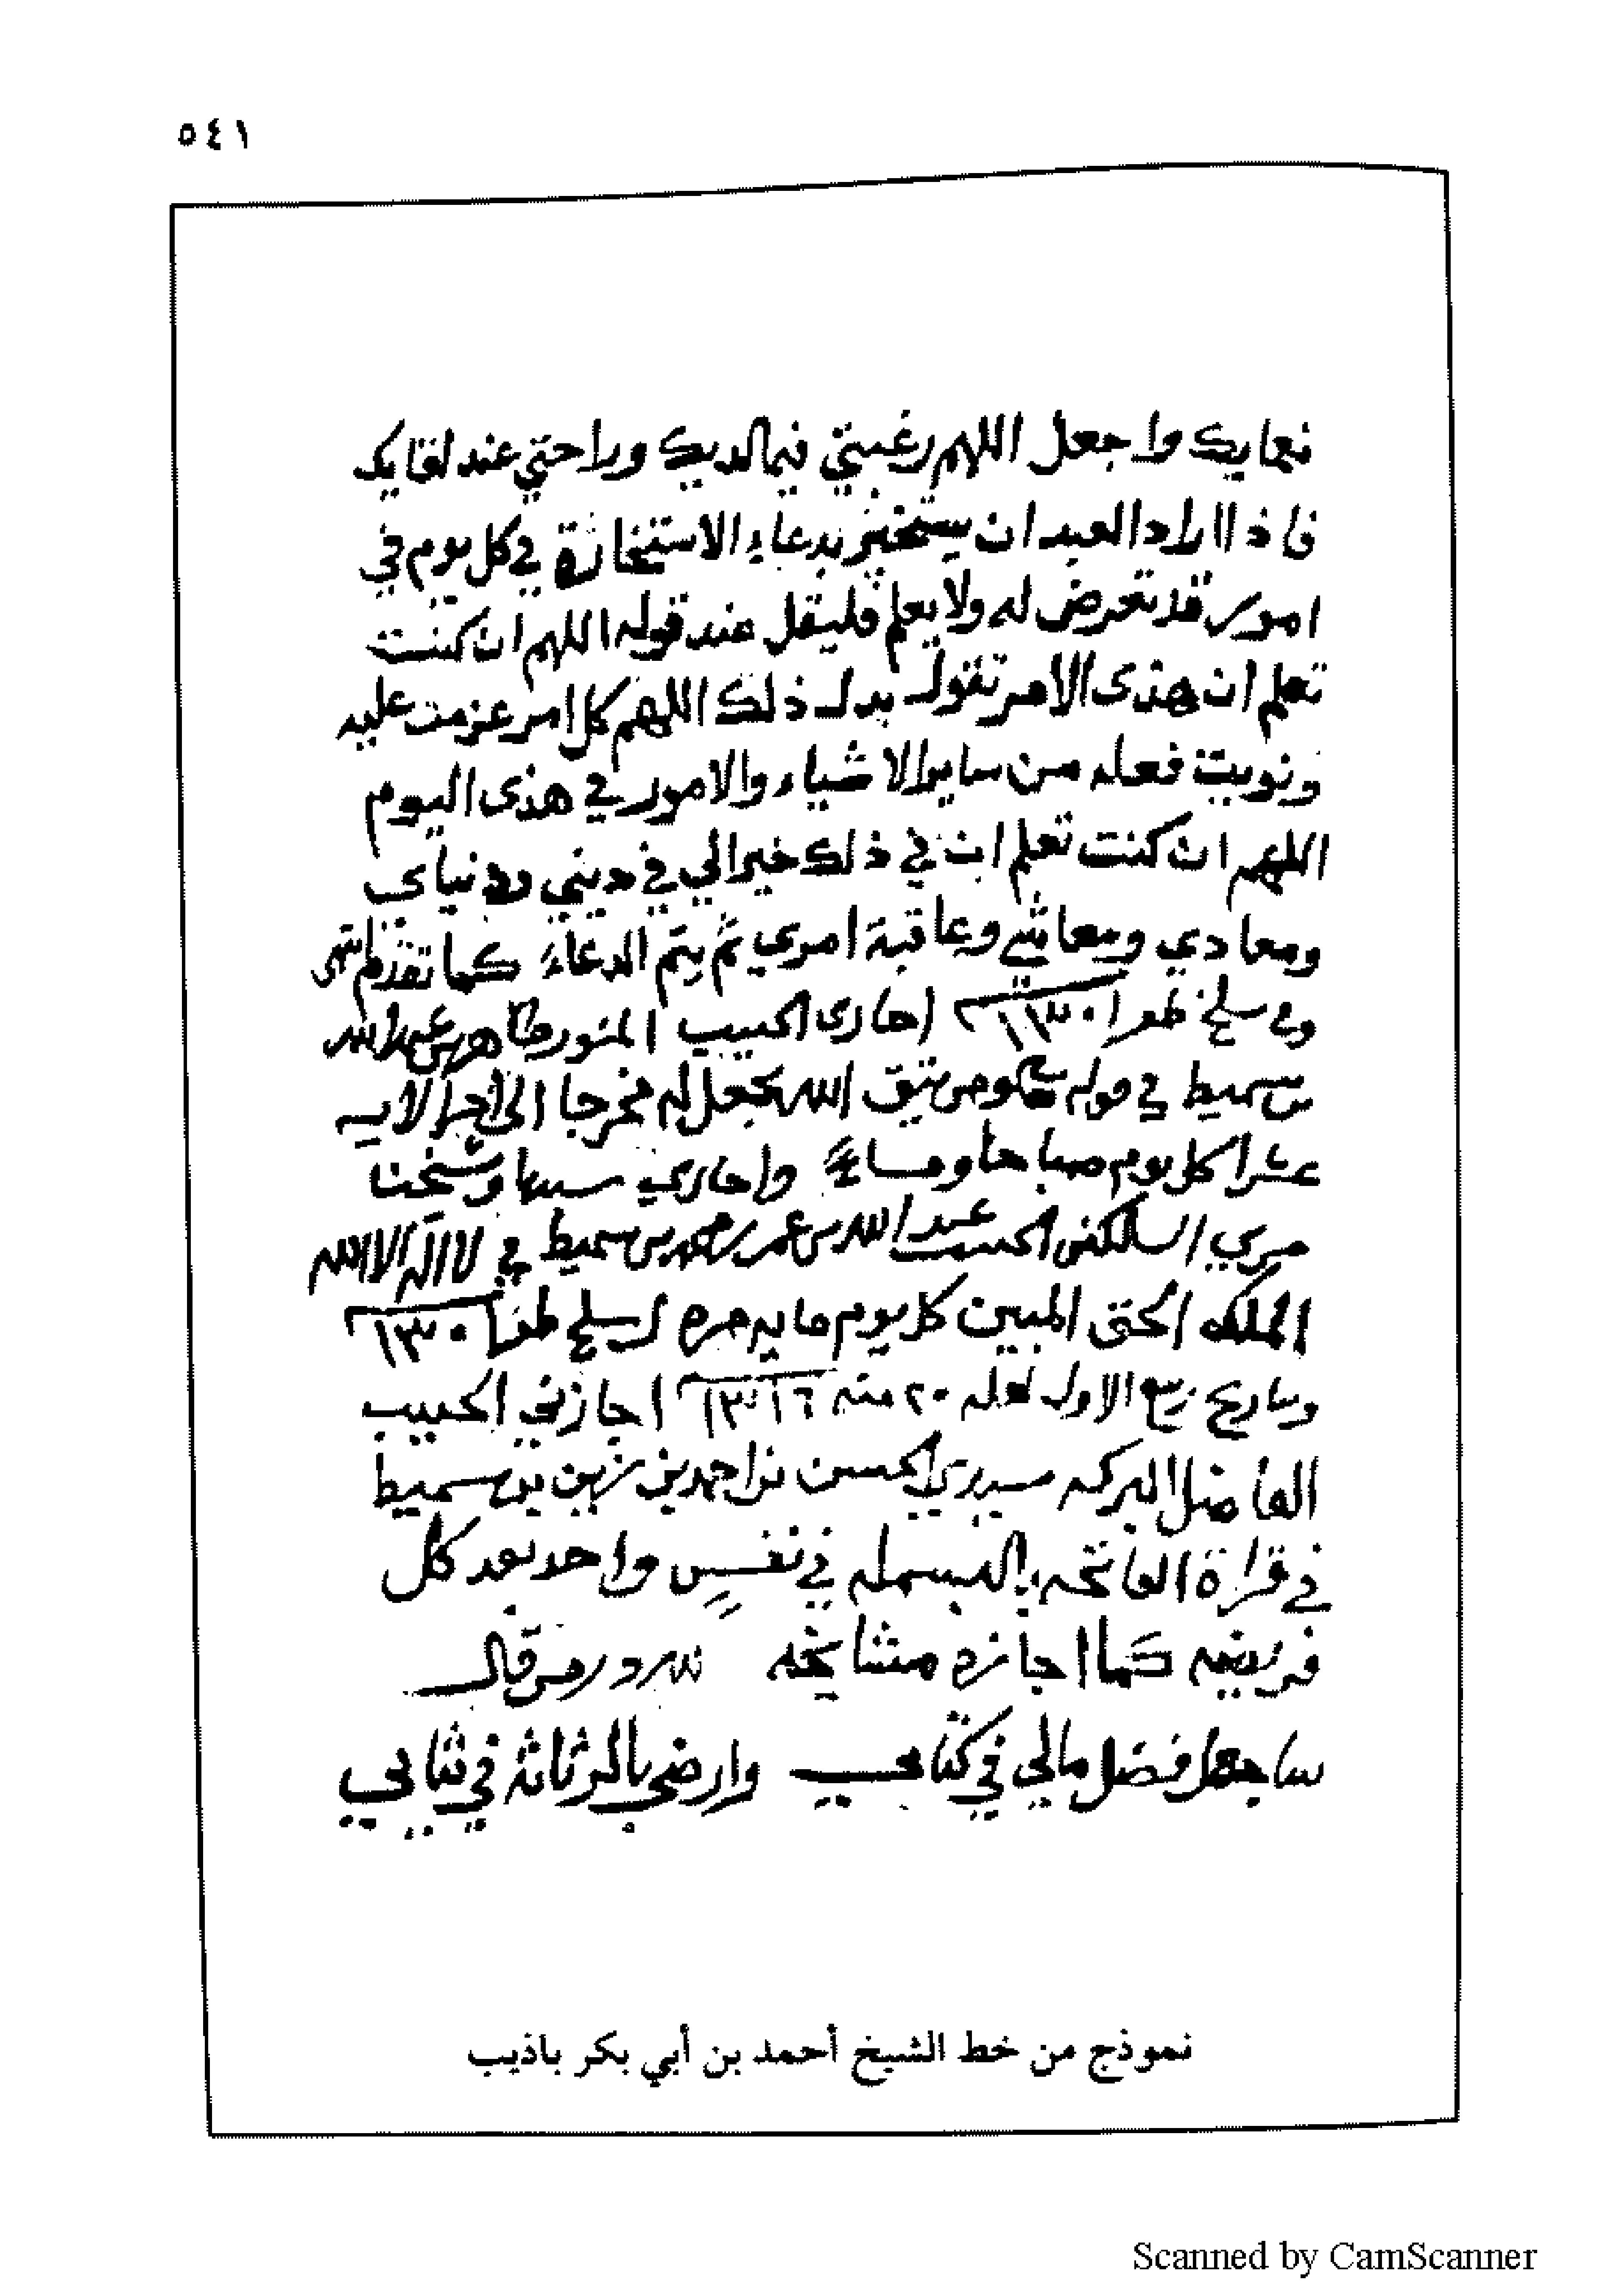 ٥٤١
نعمايك واجعل اللهم رغبتي فيما لديك وراحتي عند لقايك
فاذا اراد العبد ان يستخير بدعاء الاستخارة في كل يوم في
امور قد تعرض له ولا يعلم فليقل عند قوله اللهم ان كنت
تعلم ان هذى الامر تقول بدل ذلك اللهم كل امر عزمت عليه
ونويت فعله من ساير الاشياء والامور في هذى اليوم
اللهم ان كنت تعلم ان في ذلك خيرا لي في ديني ودنياي
ومعادي ومعاشي وعاقبة امري ثم يتم الدعاء كما تقدم انتهى
وفي سلخ ظفر ١٣٠ اجازني الحبيب المنور طاهر بن عبدالله
بن سميط في قوله ومن يتق الله يجعل له مخرجا الى اخر الايه
عشرا كل يوم صباحا ومساءً واجازني سيدنا وشيخنا
مربي السالكين الحبيب عبد الله بن عمر بن محمد بن سميط في لا اله الا الله
الملك الحق المبين كل يوم مايه مره سلخ ظفر ١٣٠
وبتاريخ ربيع الاول لعله ٢٠ منه ١٣١٦ اجازني الحبيب
الفاضل البركه سيدي الحسن بن احمد بن زين بن سميط
في قراة الفاتحه بالبسمله في نفسٍ واحد بعد كل
فريضه كما اجازه مشايخه لله در من قال
ساجعل فضل مالي في كتابي وارضى بالرثاثه في ثيابي
نموذج من خط الشيخ أحمد بن أبي بكر باذيب
Scanned by CamScanner